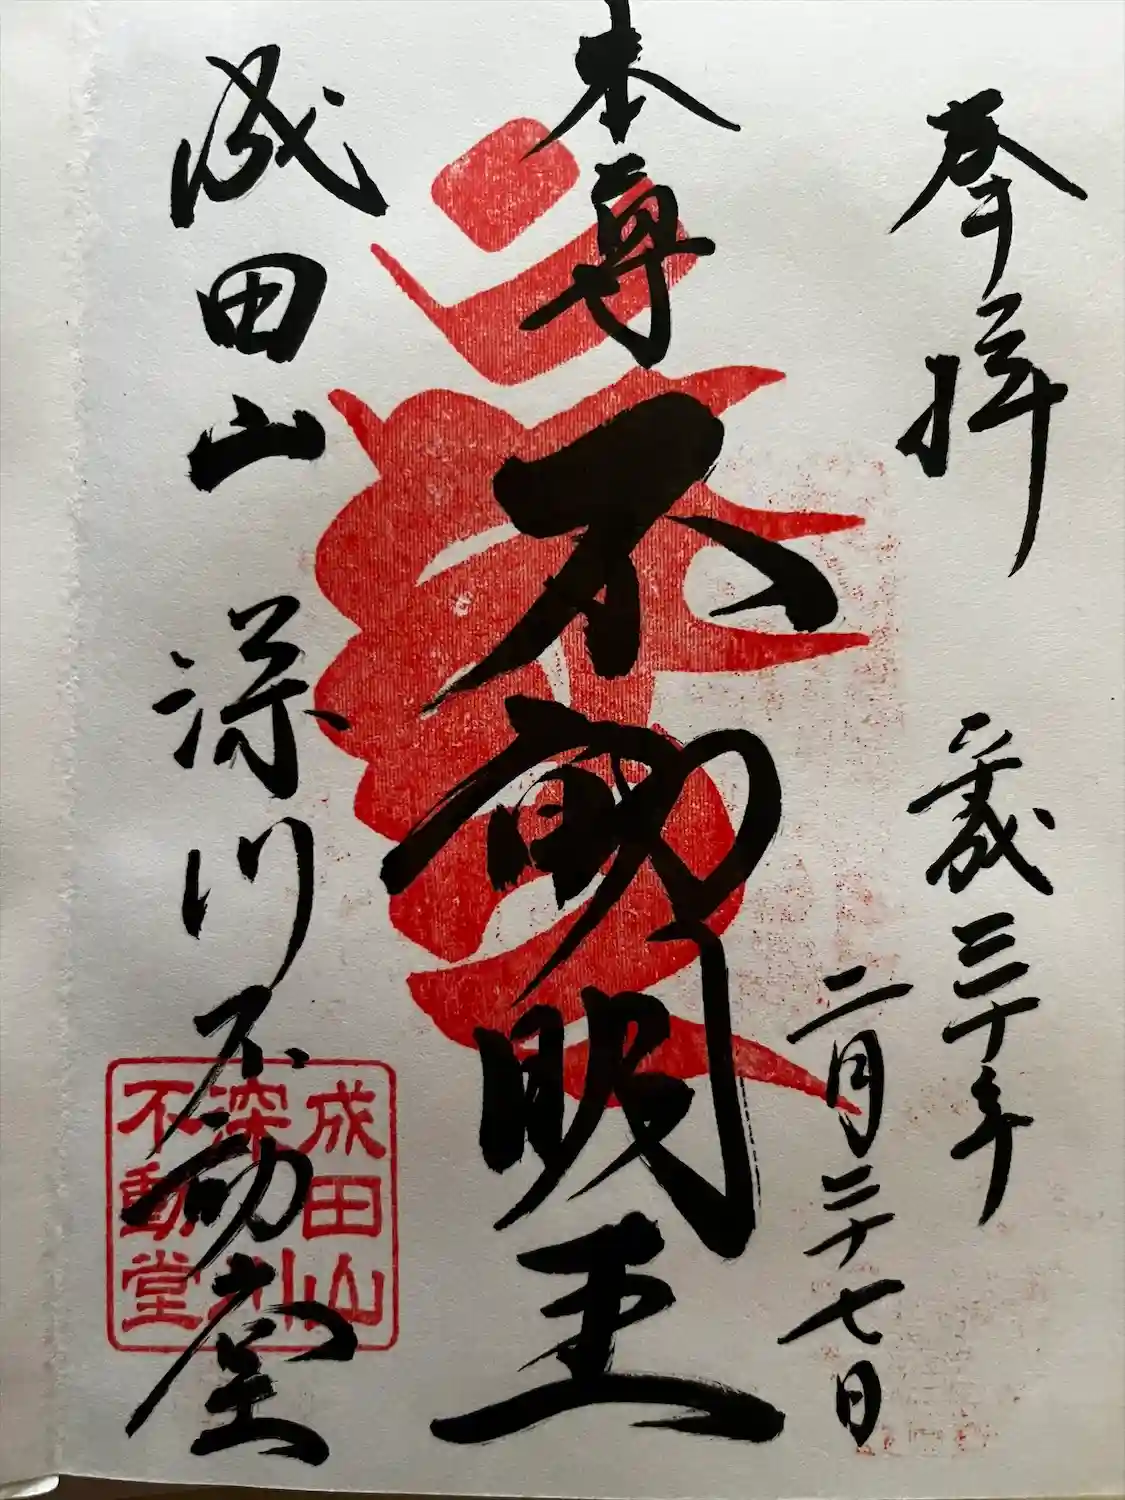 奉拝 平成三十年
二月二十七日
本尊 不動明王
成田山 深川不動堂
成田山
深川
不動堂